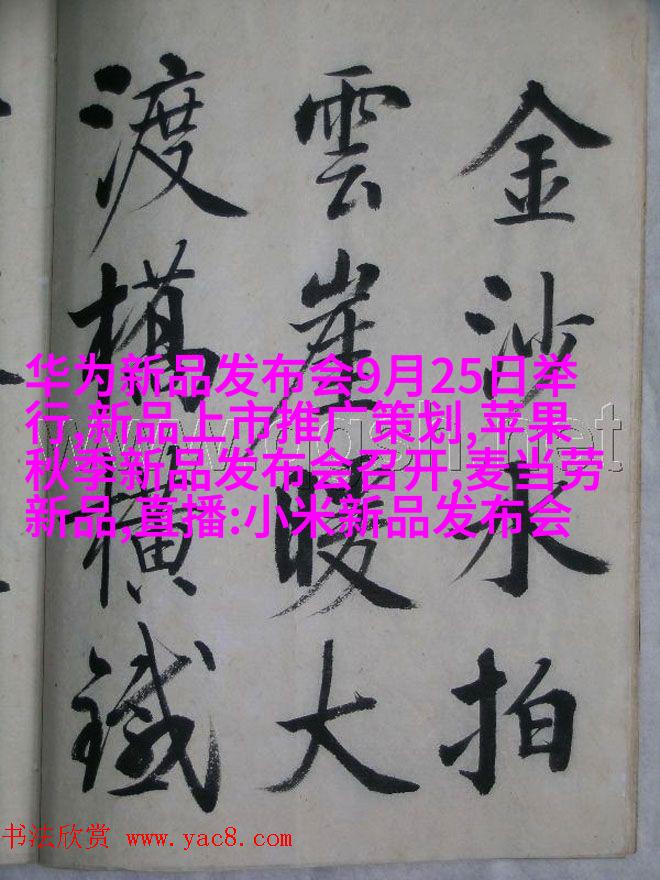 金沙水拍
雲崖暖大
渡橋橫鐵
华为新品发布会9月25日举
行,新品上市推广策划,苹果
秋季新品发布会召开,麦当劳
新品,直播:小米新品发布会
书法欣赏 www.yac8.com